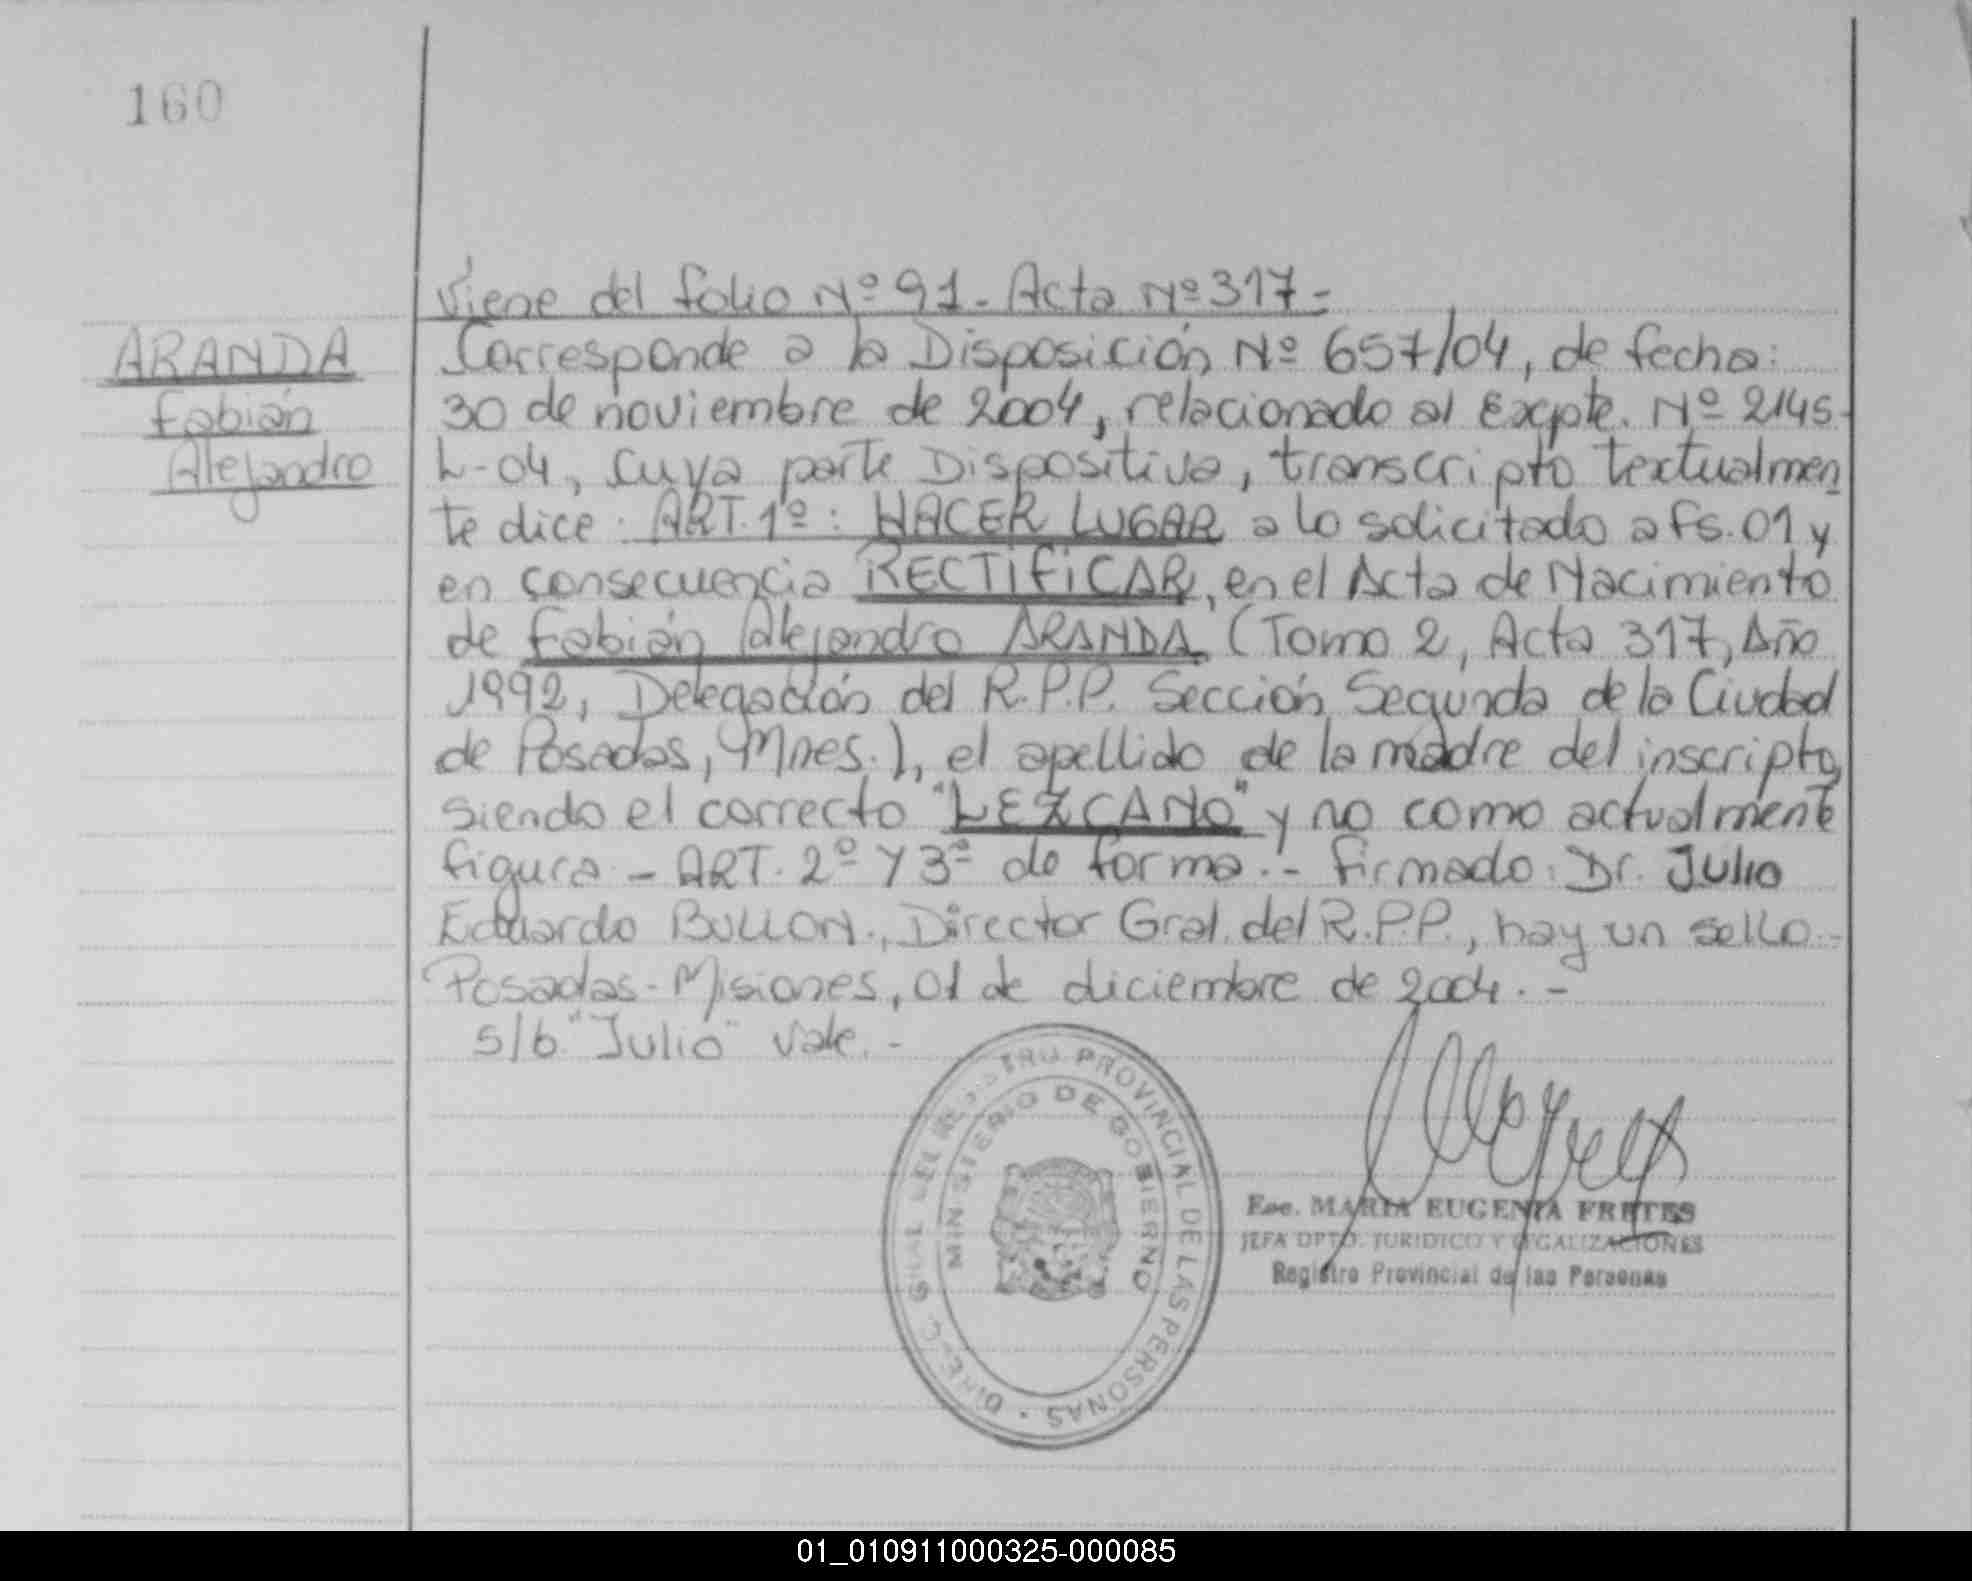 160
Viene del folio Nº 91. Acta Nº 317-
ARANDA
Fabián
Alejandro
Corresponde a la Disposición Nº 657/04, de fecha:
30 de noviembre de 2004, relacionado al Expte. Nº 2145-
L-04, cuya parte Dispositiva, transcripto textualmen
te dice: ART. 1º: HACER LUGAR a lo solicitado a fs. 01 y
en consecuencia RECTIFICAR, en el Acta de Nacimiento
de Fabián Alejandro ARANDA (Tomo 2, Acta 317, Año
1992, Delegación del R.P.P. Sección Segunda de la Ciudad
de Posadas, Mnes.), el apellido de la madre del inscripto,
siendo el correcto "LEZCANO" y no como actualmente
figura.- ART. 2º Y 3º de forma.- Firmado: Dr. Julio
Eduardo BULLON., Director Gral. del R.P.P., hay un sello.-
Posadas-Misiones, 01 de diciembre de 2004.-
s/b "Julio" vale.-
DIREC. GRAL. DEL REGISTRO PROVINCIAL DE LAS PERSONAS
MINISTERIO DE GOBIERNO
Esc. MARIA EUGENIA FRETES
JEFA DPTO. JURIDICO Y LEGALIZACIONES
Registro Provincial de las Personas
01_010911000325-000085